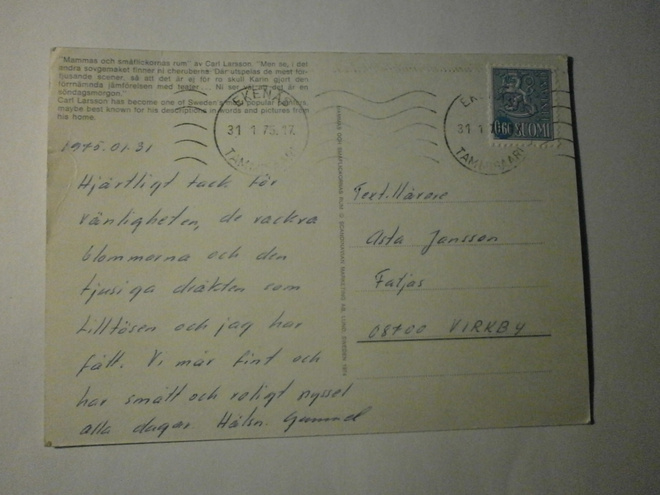 "Mammas och småflickornas rum" av Carl Larsson. "Men se, i det
andra sovgemaket finner ni cheruberna. Där utspelas de mest för-
tjusande scener, så att det är ej för ro skull Karin gjort den
förnämnda jämförelsen med teater ... Ni ser väl att det är en
söndagsmorgon."
Carl Larsson has become one of Sweden's most popular painters,
maybe best known for his descriptions in words and pictures from
his home.
EKENÄS
31 1 75.17
TAMMISAARI
EKENÄS
31 1
TAMMISAARI
0,60 SUOMI
1975.01.31
Hjärtligt tack för
vänligheten, de vackra
blommorna och den
tjusiga dräkten som
lilltösen och jag har
fått. Vi mår fint och
har smått och roligt nyssel
alla dagar. Hälsn. Gunnel
Textillärare
Asta Jansson
Fatjas
08700 VIRKBY